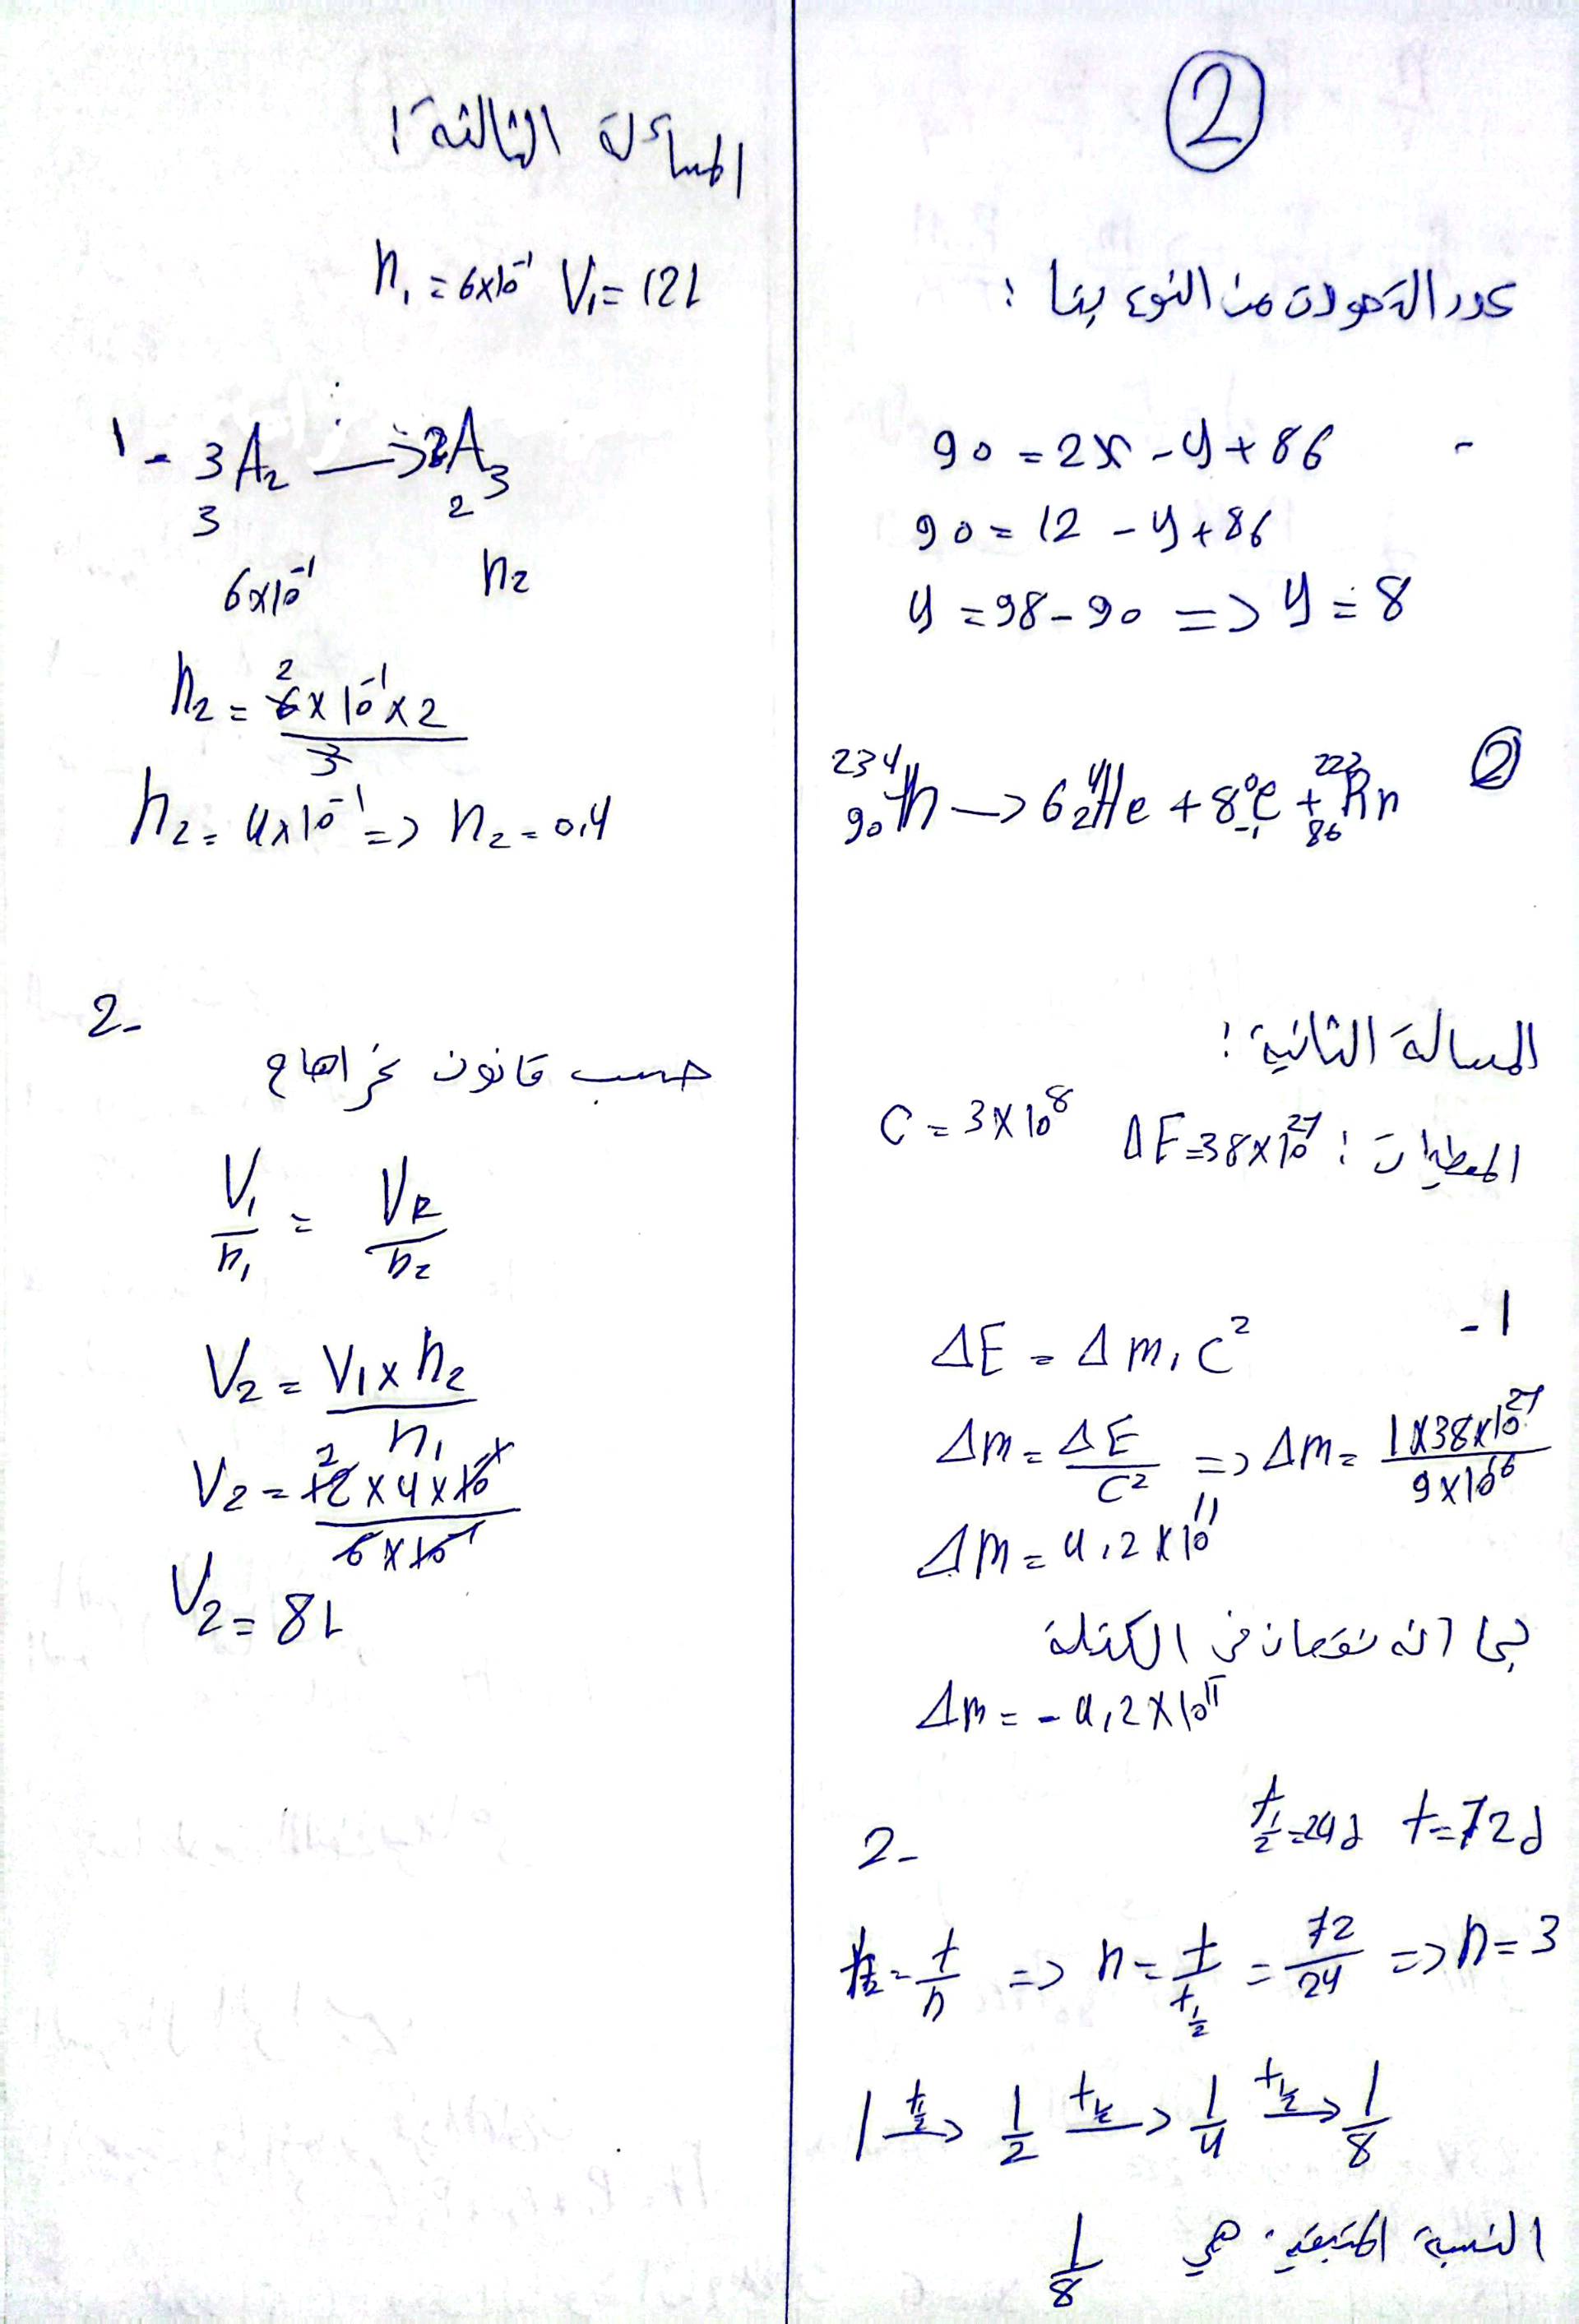 2
عدد التحولات من النوع بيتا :
- 90 = 2x - y + 86
90 = 12 - y + 86
y = 98 - 90 => y = 8
② ²³⁴₉₀Th → 6 ⁴₂He + 8 ⁰₋₁e + ²²²₈₆Rn
المسالة الثانية :
المعطيات : ΔE = 38×10²⁷ C = 3×10⁸
1 -
ΔE = Δm . C²
Δm = ΔE / C² => Δm = 1×38×10²⁷ / 9×10¹⁶
Δm = 4,2 × 10¹¹
بما انه نقصان في الكتلة
Δm = - 4,2 × 10¹¹
2 - t½ = 24d t = 72d
t½ = t / n => n = t / t½ = 72 / 24 => n = 3
1 →(t½) 1/2 →(t½) 1/4 →(t½) 1/8
النسبة المتبقية هي 1/8
المسألة الثالثة :
n₁ = 6×10⁻¹ V₁ = 12L
1 - 3A₂ → 2A₃
3 2
6×10⁻¹ n₂
n₂ = 6×10⁻¹×2 / 3
n₂ = 4×10⁻¹ => n₂ = 0,4
2 -
حسب قانون
V₁ / n₁ = V₂ / n₂
V₂ = V₁ × n₂ / n₁
V₂ = 12 × 4 × 10⁻¹ / 6 × 10⁻¹
V₂ = 8L